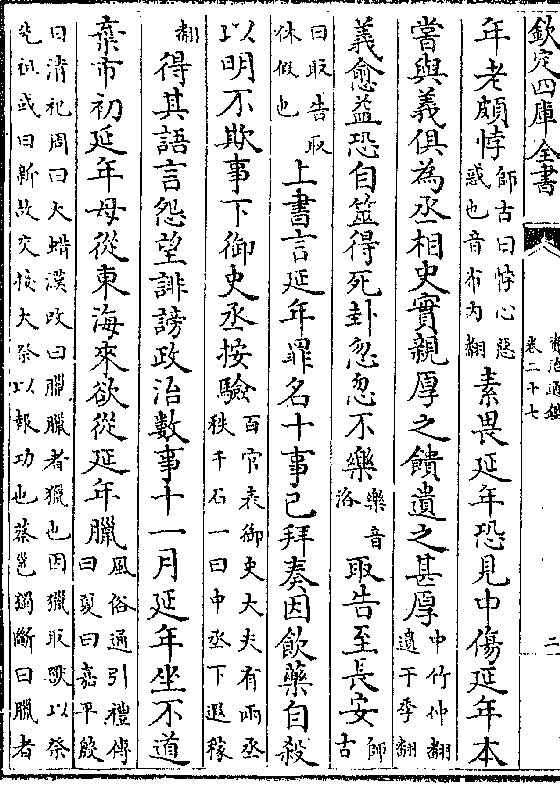 欽定四庫全書
資治通鑑
卷二十七
二
年老頗悖師古曰悖心惡
惑也音布内翻素畏延年恐見中傷延年本
嘗與義俱為丞相史實親厚之饋遺之甚厚中竹仲翻
遺于季翻
義愈益恐自筮得死卦忽忽不樂樂音
洛取告至長安師
古
曰取告取
休假也上書言延年罪名十事已拜奏因飲藥自殺
以明不欺事下御史丞按驗百官表御史大夫有兩丞
秩千石一曰中丞下遐稼
翻得其語言怨望誹謗政治數事十一月延年坐不道
棄市初延年母從東海來欲從延年臘風俗通引禮傳
曰夏曰嘉平殷
曰清祀周曰大蜡漢改曰臘臘者獵也因獵取獸以祭
先祖或曰新故交接大祭以報功也蔡邕獨斷曰臘者